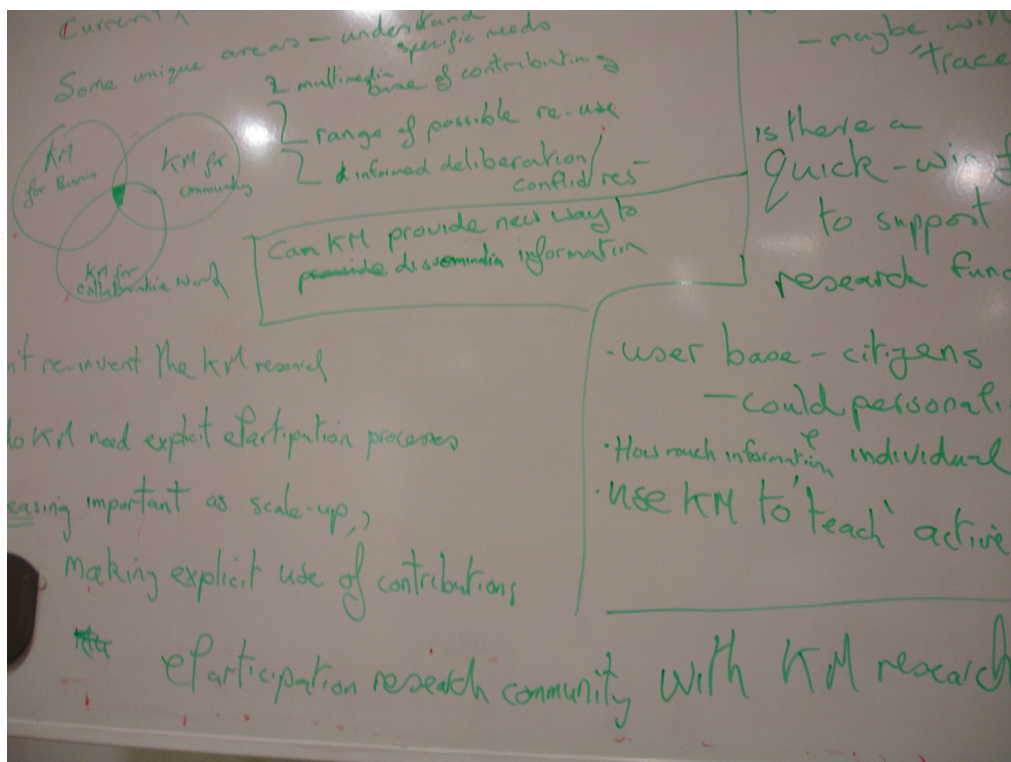 Some unique areas – understand
specific needs
multimedia
base of contributing
range of possible re-use
& informed deliberation/
conflict res
KM
for
KM for
community
KM for
collaborative work
Can KM provide new way to
provide information
n't re-invent the KM research
do KM need explicit eParticipation processes
easing important as scale-up,
Making explicit use of contributions
eParticipation research community with KM research
– maybe with
'trace
is there a
quick-win f
to support
research fund
· user base – citizens
– could personali
· How much information individual
· use KM to 'teach' active